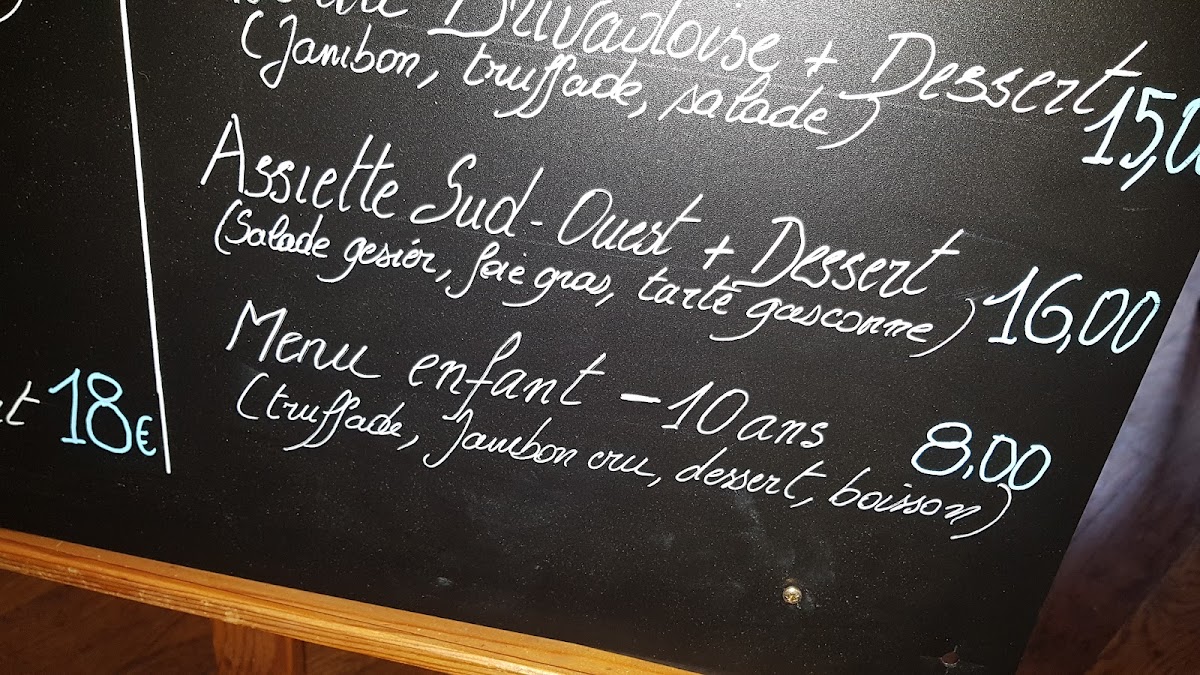 Brivadoise + Dessert 15,0
(Jambon, truffade, salade)
Assiette Sud-Ouest + Dessert
(Salade gesiér, foie gras, tarte gasconne) 16,00
Menu enfant - 10 ans 8,00
(truffade, Jambon cru, dessert, boisson)
18€